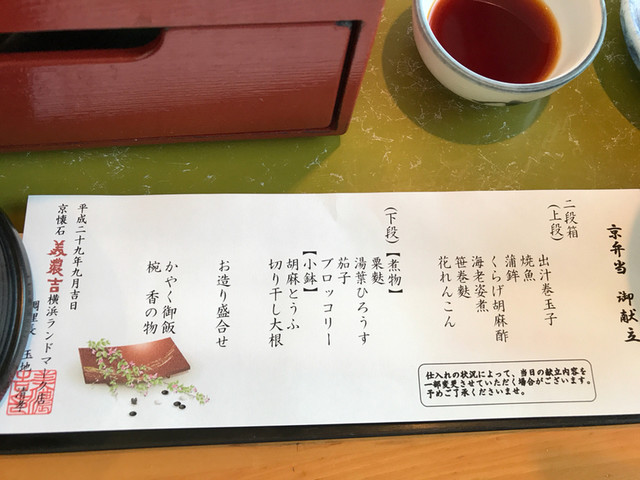 京弁当 御献立
二段箱
(上段)
出汁巻玉子
焼魚
蒲鉾
くらげ胡麻酢
海老姿煮
笹巻麩
花れんこん
(下段)
【煮物】
粟麩
湯葉ひろうす
茄子
ブロッコリー
【小鉢】
胡麻とうふ
切り干し大根
お造り盛合せ
かやく御飯
椀 香の物
平成二十九年九月吉日
京懐石 美濃吉 横浜ランドマーク店
調理長 玉地
仕入れの状況によって、当日の献立内容を
一部変更させていただく場合がございます。
予めご了承くださいませ。